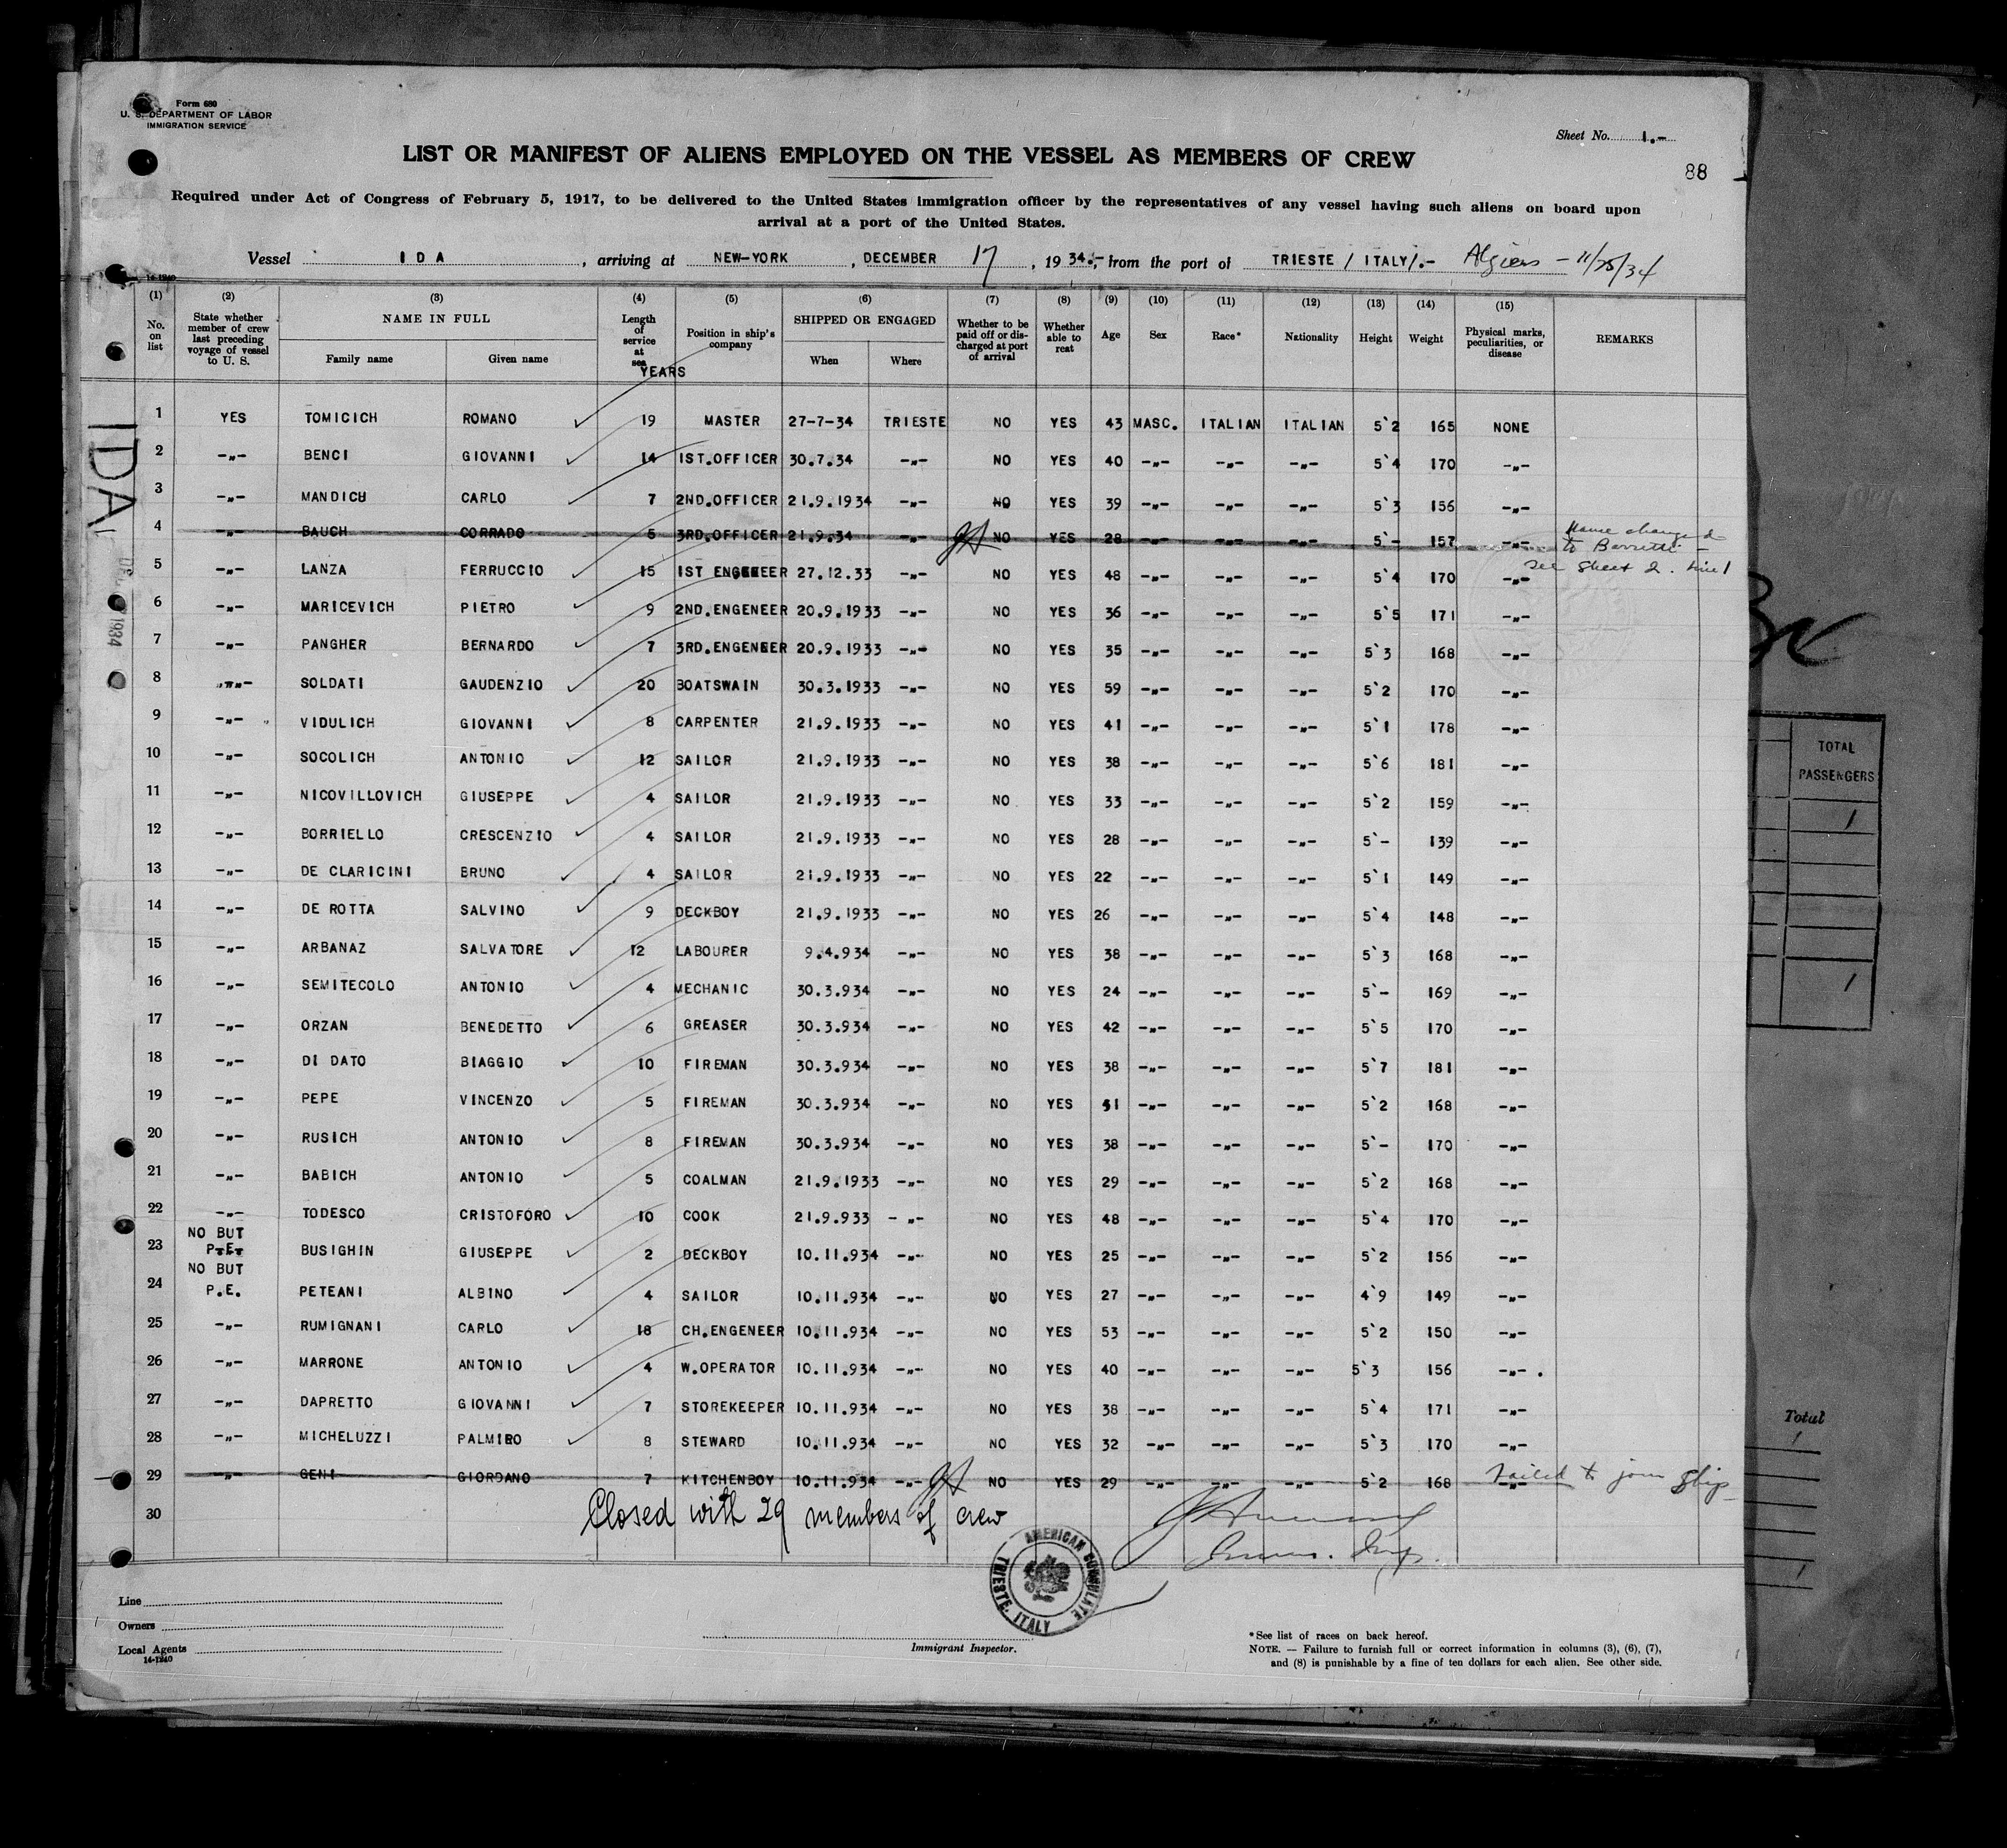 Form 680
U. S. DEPARTMENT OF LABOR
IMMIGRATION SERVICE
Sheet No. 1.-
88
LIST OR MANIFEST OF ALIENS EMPLOYED ON THE VESSEL AS MEMBERS OF CREW
Required under Act of Congress of February 5, 1917, to be delivered to the United States immigration officer by the representatives of any vessel having such aliens on board upon
arrival at a port of the United States.
Vessel IDA, arriving at NEW-YORK, DECEMBER 17, 1934.-, from the port of TRIESTE / ITALY/.- Algiers - 11/25/34
14-1240
(1) (2) (3) (4) (5) (6) (7) (8) (9) (10) (11) (12) (13) (14) (15)
No. on list | State whether member of crew last preceding voyage of vessel to U. S. | NAME IN FULL Family name Given name | Length of service at sea YEARS | Position in ship's company | SHIPPED OR ENGAGED When Where | Whether to be paid off or discharged at port of arrival | Whether able to read | Age | Sex | Race* | Nationality | Height | Weight | Physical marks, peculiarities, or disease | REMARKS
1 YES TOMICICH ROMANO 19 MASTER 27-7-34 TRIESTE NO YES 43 MASC. ITALIAN ITALIAN 5'2 165 NONE
2 -"- BENCI GIOVANNI 14 IST.OFFICER 30.7.34 -"- NO YES 40 -"- -"- -"- 5'4 170 -"-
3 -"- MANDICH CARLO 7 2ND.OFFICER 21.9.1934 -"- NO YES 39 -"- -"- -"- 5'3 156 -"-
4 -"- BAUCH CORRADO 5 3RD.OFFICER 21.9.34 -"- NO YES 28 -"- -"- -"- 5'- 157 -"- Name changed to Barretti - see sheet 2. Line 1
5 -"- LANZA FERRUCCIO 15 IST ENGENEER 27.12.33 -"- NO YES 48 -"- -"- -"- 5'4 170 -"-
6 -"- MARICEVICH PIETRO 9 2ND.ENGENEER 20.9.1933 -"- NO YES 36 -"- -"- -"- 5'5 171 -"-
7 -"- PANGHER BERNARDO 7 3RD.ENGENEER 20.9.1933 -"- NO YES 35 -"- -"- -"- 5'3 168 -"-
8 -"- SOLDATI GAUDENZIO 20 BOATSWAIN 30.3.1933 -"- NO YES 59 -"- -"- -"- 5'2 170 -"-
9 -"- VIDULICH GIOVANNI 8 CARPENTER 21.9.1933 -"- NO YES 41 -"- -"- -"- 5'1 178 -"-
10 -"- SOCOLICH ANTONIO 12 SAILOR 21.9.1933 -"- NO YES 38 -"- -"- -"- 5'6 181 -"-
11 -"- NICOVILLOVICH GIUSEPPE 4 SAILOR 21.9.1933 -"- NO YES 33 -"- -"- -"- 5'2 159 -"-
12 -"- BORRIELLO CRESCENZIO 4 SAILOR 21.9.1933 -"- NO YES 28 -"- -"- -"- 5'- 139 -"-
13 -"- DE CLARICINI BRUNO 4 SAILOR 21.9.1933 -"- NO YES 22 -"- -"- -"- 5'1 149 -"-
14 -"- DE ROTTA SALVINO 9 DECKBOY 21.9.1933 -"- NO YES 26 -"- -"- -"- 5'4 148 -"-
15 -"- ARBANAZ SALVATORE 12 LABOURER 9.4.934 -"- NO YES 38 -"- -"- -"- 5'3 168 -"-
16 -"- SEMITECOLO ANTONIO 4 MECHANIC 30.3.934 -"- NO YES 24 -"- -"- -"- 5'- 169 -"-
17 -"- ORZAN BENEDETTO 6 GREASER 30.3.934 -"- NO YES 42 -"- -"- -"- 5'5 170 -"-
18 -"- DI DATO BIAGGIO 10 FIREMAN 30.3.934 -"- NO YES 38 -"- -"- -"- 5'7 181 -"-
19 -"- PEPE VINCENZO 5 FIREMAN 30.3.934 -"- NO YES -"- -"- -"- 5'2 168 -"-
20 -"- RUSICH ANTONIO 8 FIREMAN 30.3.934 -"- NO YES 38 -"- -"- -"- 5'- 170 -"-
21 -"- BABICH ANTONIO 5 COALMAN 21.9.1933 -"- NO YES 29 -"- -"- -"- 5'2 168 -"-
22 -"- TODESCO CRISTOFORO 10 COOK 21.9.933 -"- NO YES 48 -"- -"- -"- 5'4 170 -"-
23 NO BUT P.E. BUSIGHIN GIUSEPPE 2 DECKBOY 10.11.934 -"- NO YES 25 -"- -"- -"- 5'2 156 -"-
24 NO BUT P.E. PETEANI ALBINO 4 SAILOR 10.11.934 -"- NO YES 27 -"- -"- -"- 4'9 149 -"-
25 -"- RUMIGNANI CARLO 18 CH.ENGENEER 10.11.934 -"- NO YES 53 -"- -"- -"- 5'2 150 -"-
26 -"- MARRONE ANTONIO 4 W.OPERATOR 10.11.934 -"- NO YES 40 -"- -"- -"- 5'3 156 -"- .
27 -"- DAPRETTO GIOVANNI 7 STOREKEEPER 10.11.934 -"- NO YES 38 -"- -"- -"- 5'4 171 -"-
28 -"- MICHELUZZI PALMIRO 8 STEWARD 10.11.934 -"- NO YES 32 -"- -"- -"- 5'3 170 -"-
29 -"- GENI GIORDANO 7 KITCHENBOY 10.11.934 -"- NO YES 29 -"- -"- -"- 5'2 168 -"- Failed to join ship
30
Closed with 29 members of crew
AMERICAN CONSULATE
TRIESTE, ITALY
Immigrant Inspector.
Line
Owners
Local Agents
14-1240
*See list of races on back hereof.
NOTE. — Failure to furnish full or correct information in columns (3), (6), (7),
and (8) is punishable by a fine of ten dollars for each alien. See other side.
IDA
1934
TOTAL
PASSENGERS
1
1
Total
1
1